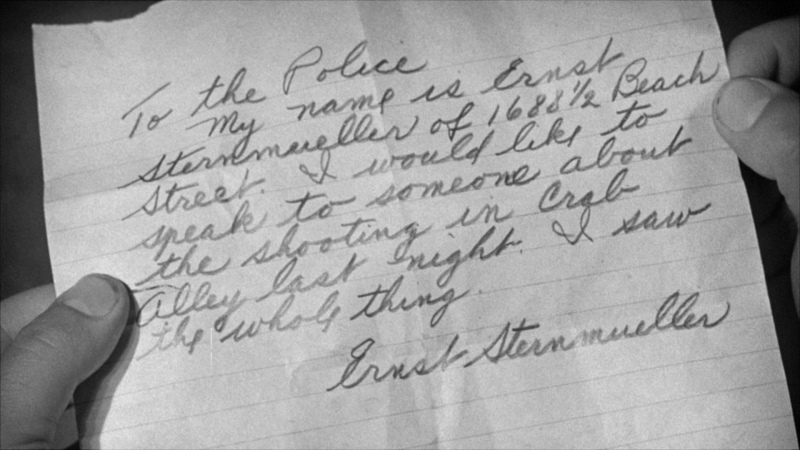 To the Police
My name is Ernst
Sternmueller of 1688½ Beach
Street. I would like to
speak to someone about
the shooting in Crab
Alley last night. I saw
the whole thing.
Ernst Sternmueller